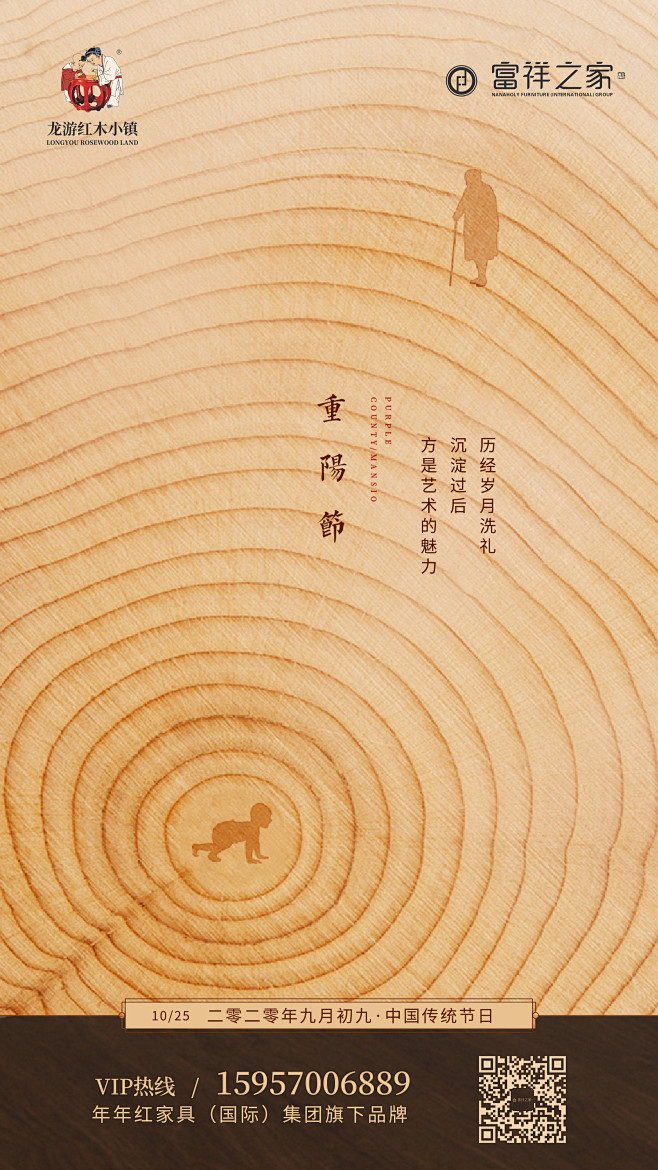 龙游红木小镇
LONGYOU ROSEWOOD LAND
富祥之家
NANAHOLY FURNITURE (INTERNATIONAL) GROUP
重陽節
PURPLE
COUNTY/MANSIO
历经岁月洗礼
沉淀过后
方是艺术的魅力
10/25 二零二零年九月初九·中国传统节日
VIP热线 / 15957006889
年年红家具（国际）集团旗下品牌